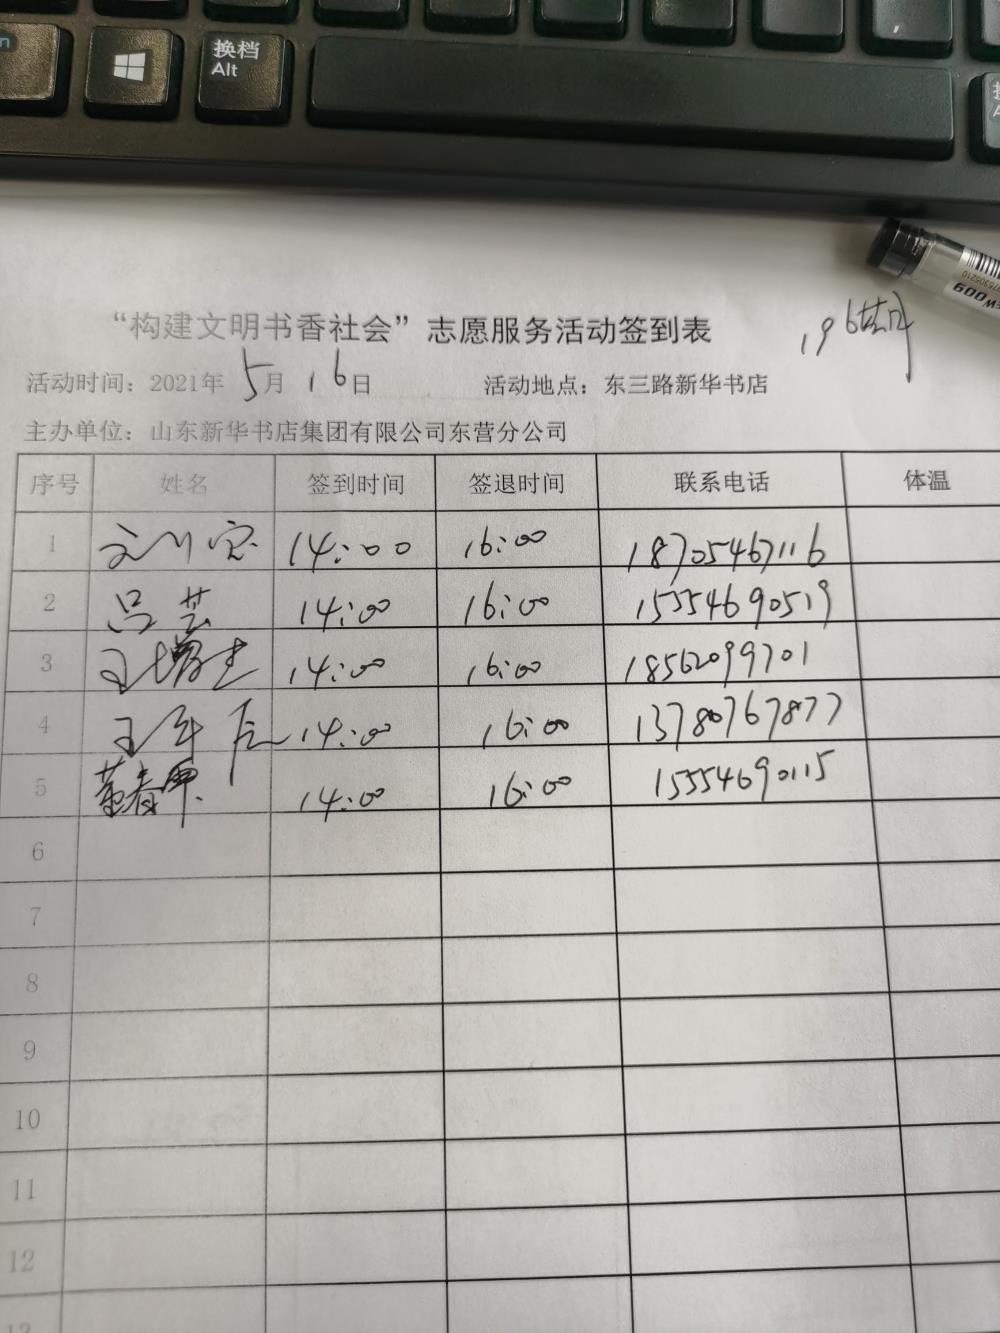 换档
Alt
“构建文明书香社会”志愿服务活动签到表
活动时间：2021年 5月 16日 活动地点：东三路新华书店
主办单位：山东新华书店集团有限公司东营分公司
序号 姓名 签到时间 签退时间 联系电话 体温
1 14:00 16:00 18705467116
2 吕芸 14:00 16:00 15554690519
3 王增志 14:00 16:00 18562099701
4 王年 14:00 16:00 13780767877
5 董春 14:00 16:00 15554690115
6
7
8
9
10
11
12
13